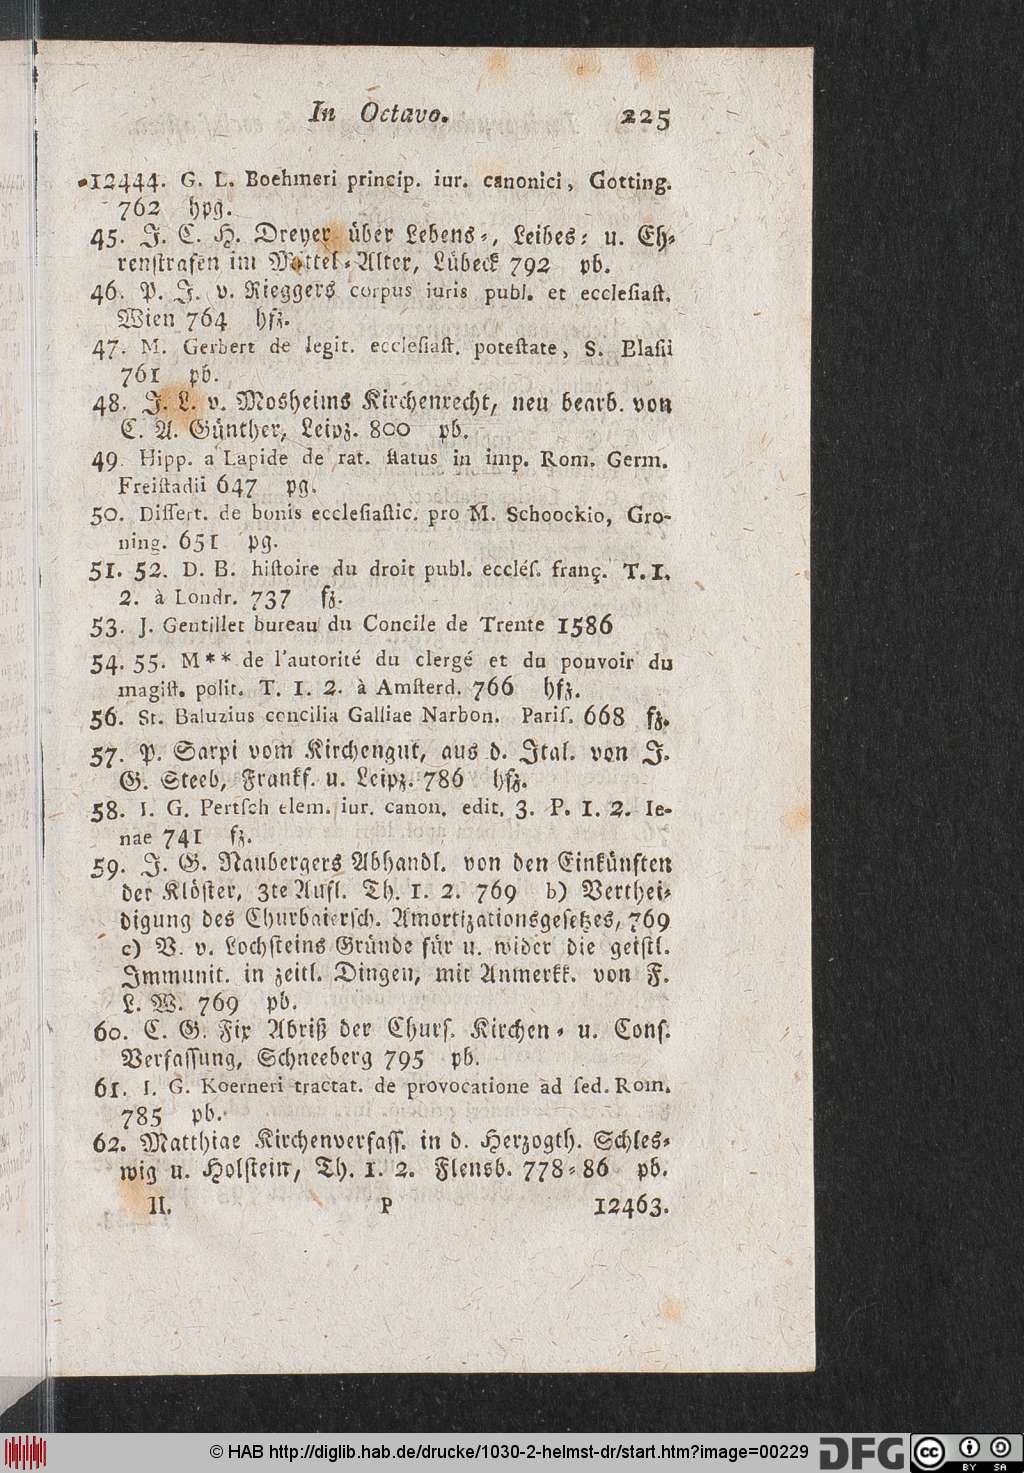 In Octavo. 225
12444. G. L. Boehmeri princip. iur. canonici, Gotting.
762 hpg.
45. J. C. H. Dreyer über Lebens-, Leibes- u. Eh-
renstrafen im Mittel-Alter, Lübeck 792 pb.
46. P. J. v. Rieggers corpus iuris publ. et ecclesiast.
Wien 764 hfz.
47. M. Gerbert de legit. ecclesiast. potestate, S. Blasii
761 pb.
48. J. L. v. Mosheims Kirchenrecht, neu bearb. von
C. A. Günther, Leipz. 800 pb.
49. Hipp. a Lapide de rat. status in imp. Rom. Germ.
Freistadii 647 pg.
50. Dissert. de bonis ecclesiastic. pro M. Schoockio, Gro-
ning. 651 pg.
51. 52. D. B. histoire du droit publ. ecclés. franç. T. I.
2. à Londr. 737 fz.
53. J. Gentillet bureau du Concile de Trente 1586
54. 55. M** de l'autorité du clergé et du pouvoir du
magist. polit. T. 1. 2. à Amsterd. 766 hfz.
56. St. Baluzius concilia Galliae Narbon. Paris. 668 fz.
57. P. Sarpi vom Kirchengut, aus d. Ital. von J.
G. Steeb, Frankf. u. Leipz. 786 hfz.
58. I. G. Pertsch elem. iur. canon. edit. 3. P. 1. 2. Ie-
nae 741 fz.
59. J. G. Naubergers Abhandl. von den Einkünften
der Klöster, 3te Aufl. Th. 1. 2. 769 b) Verthei-
digung des Churbaiersch. Amortizationsgesetzes, 769
c) V. v. Lochsteins Gründe für u. wider die geistl.
Immunit. in zeitl. Dingen, mit Anmerkk. von F.
L. W. 769 pb.
60. C. G. Fix Abriß der Churs. Kirchen- u. Cons.
Verfassung, Schneeberg 795 pb.
61. I. G. Koerneri tractat. de provocatione ad sed. Rom.
785 pb.
62. Matthiae Kirchenverfass. in d. Herzogth. Schles-
wig u. Holstein, Th. 1. 2. Flensb. 778-86 pb.
II. P 12463.
© HAB http://diglib.hab.de/drucke/1030-2-helmst-dr/start.htm?image=00229
DFG
cc BY SA